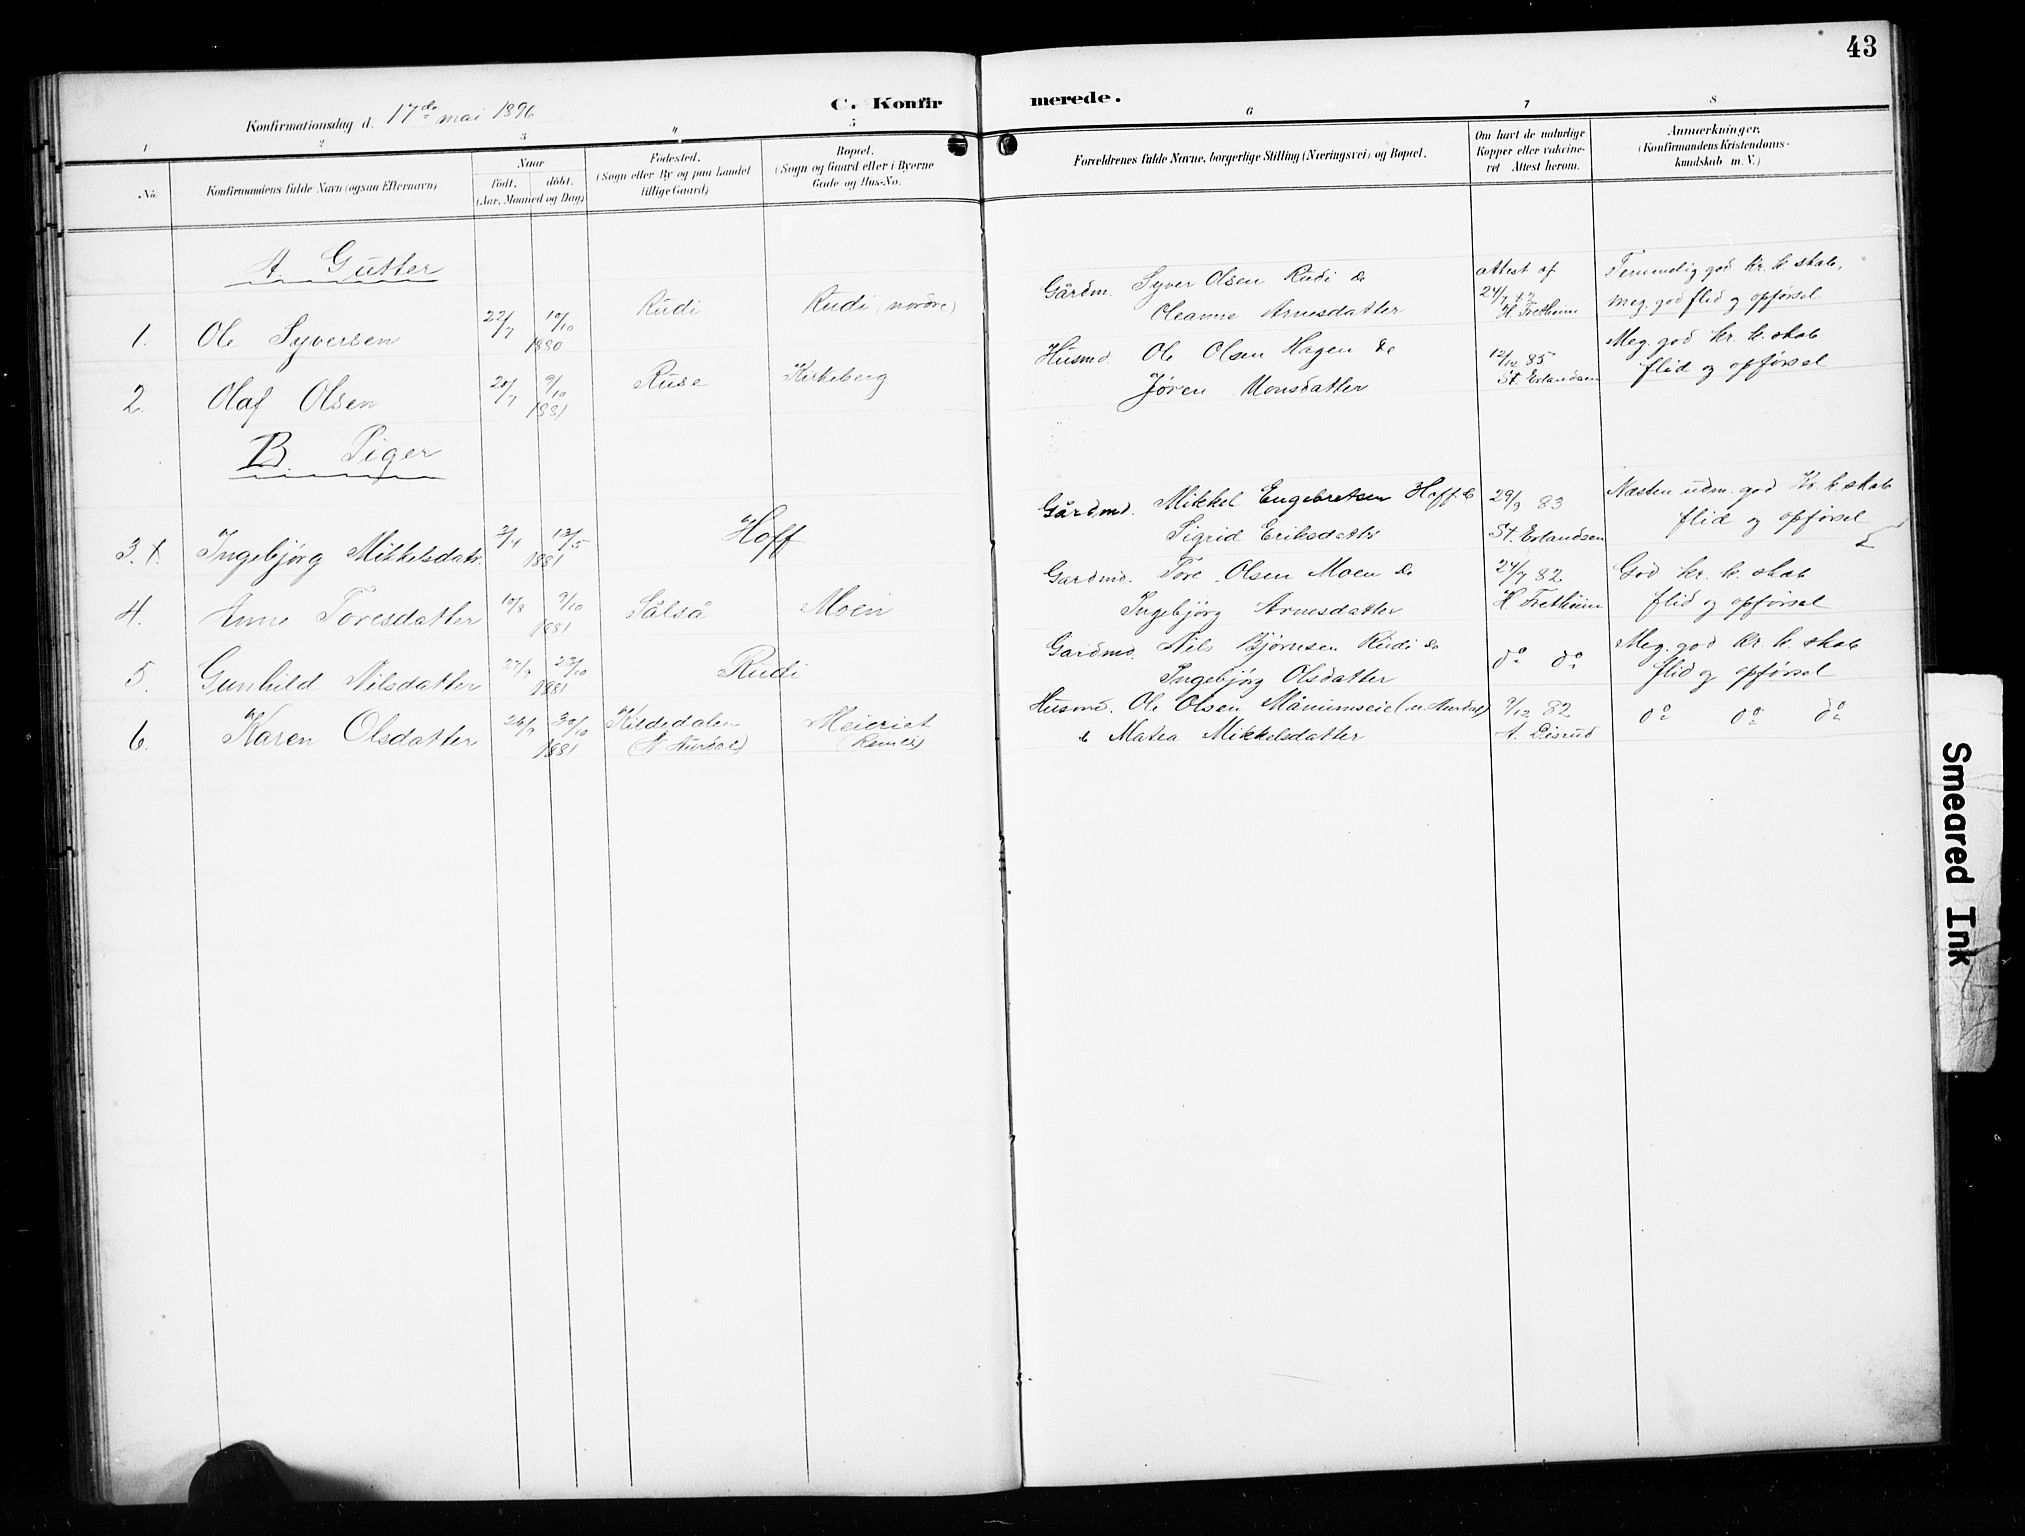 43
C. Konfirmerede.
Konfirmationsdag d. 17de mai 1896
1 2 3 4 5 6 7 8
No.
Konfirmandens fulde Navn (ogsaa Efternavn)
Naar
födt. döbt.
(Aar, Maaned og Dag)
Fødested.
(Sogn eller By og paa Landet
tillige Gaard)
Bopæl.
(Sogn og Gaard eller i Byerne
Gade og Hus-No.
Forældrenes fulde Navne, borgerlige Stilling (Næringsvei) og Bopæl.
Om havt de naturlige
Kopper eller vakcine-
ret Attest herom.
Anmærkninger,
(Konfirmandens Kristendoms-
kundskab m. V.)
A. Gutter
1. Ole Syversen 22/7 10/10 1880 Rudi Rudi (nordre)
Gårdm. Syver Olsen Rudi &
Oleanne Arnesdatter
attest af
24/7 82
H Fretheim
Temmelig god kr. k. skab,
meg. god flid og opførsel
2. Olaf Olsen 20/7 9/10 1881 Ruse Kirkeberg
Husmd. Ole Olsen Hagen &
Jøren Monsdatter
12/12 85
St. Erlandsen
Meg. god kr. k. skab
flid og opførsel
B. Piger
3. 1. Ingebjörg Mikkelsdatr. 2/4 13/5 1881 Hoff
Gårdmd. Mikkel Engebretsen Hoff &
Sigrid Eriksdatter
29/9 83
St. Erlandsen
Næsten udm. god Kr. k. skab
flid og opførsel
4. Anne Toresdatter 10/8 9/10 1881 Sålså Moen
Gardmd. Tore Olsen Moen &
Ingebjörg Arnesdatter
24/7 82
H Fretheim
God kr. k. skab
flid og opførsel
5. Gunhild Nilsdatter 27/9 23/10 1881 Rudi
Gardmd. Nils Bjørnsen Rudi &
Ingebjörg Olsdatter
do do
Meg. god kr. k. skab
flid og opførsel
6. Karen Olsdatter 26/9 30/10 1881 Kildedalen
(N. Aurdal)
Meieriet
Husmd. Ole Olsen (n. Aurdal)
& Matea Mikkelsdatter
9/12 82
do do do
Smeared Ink